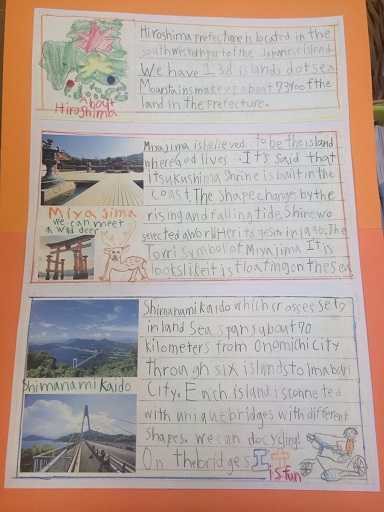 Hiroshima prefecture is located in the
southwestern part of the Japanese island.
We have 138 islands dot sea
Mountains make up about 73% of the
land in the prefecture.
About
Hiroshima
Miyajima is believed to be the island
where God lives. It's said that
itsukushima Shrine is built in the
coast. The shape change by the
rising and falling tide. Shine wo
selected a World Heritage site in 1996. The
Torri Symbol of Miyajima It is
looks like it is floating on the sea
Miyajima
we can meet
a wild deer
Shimanami Kaido which crosses Seto
inland Sea spans about 70
kilometers from Onomichi City
through six islands to Imabari
City. Each island is connected
with unique bridges with different
shapes. we can do cycling!
On the bridges It
is fun
Shimanami Kaido